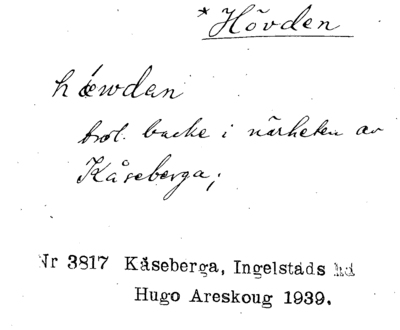 * Hövden
hǿwdan
brøl. backe i närheten av
Kåseberga;
Nr 3817 Kåseberga, Ingelstads hd
Hugo Areskoug 1939.